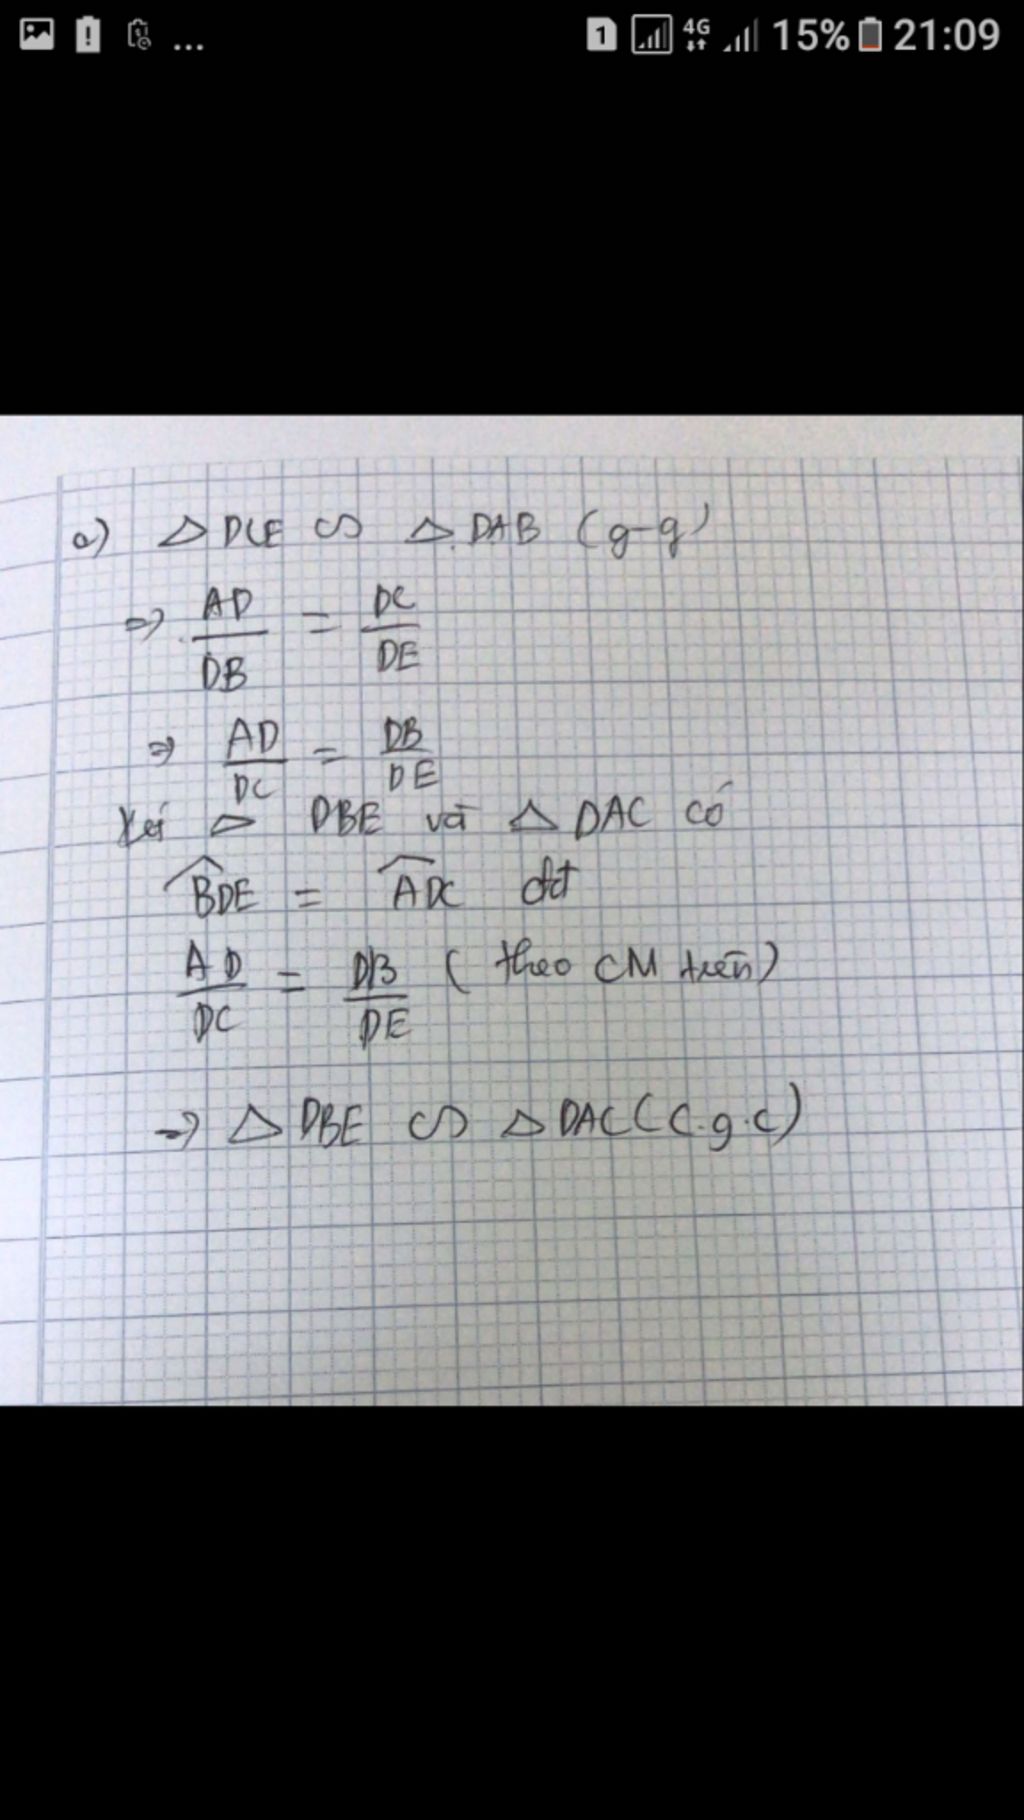 ... 1 4G 15% 21:09
a) △ DCE ∽ △ DAB (g-g)
⇒ AD/DB = DC/DE
⇒ AD/DC = DB/DE
Xét △ DBE và △ DAC có
BDE = ADC đđ
AD/DC = DB/DE (theo CM trên)
⇒ △ DBE ∽ △ DAC (c.g.c)